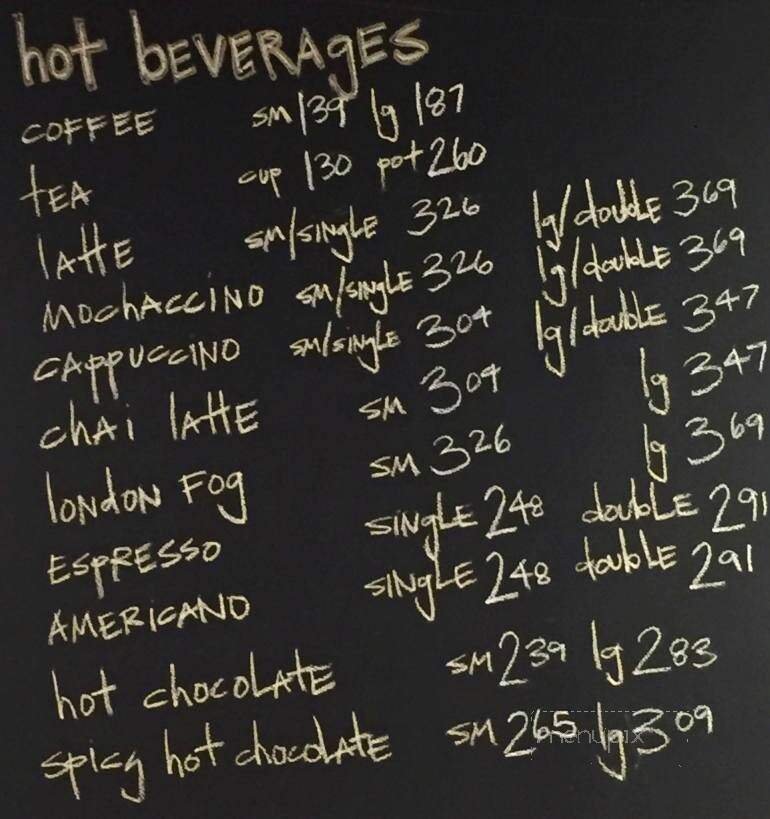 hot BEVERAgES
COFFEE sm 139 lg 187
tEA cup 130 pot 260
lAttE sm/singlE 326 lg/doublE 369
MochAccINO sm/singlE 326 lg/doublE 369
CAppuccINO sm/singlE 304 lg/doublE 347
chAi lAttE sm 304 lg 347
loNdoN Fog sm 326 lg 369
EspRESSO singlE 248 doublE 291
AMERICANO singlE 248 doublE 291
hot chocolAtE sm 239 lg 283
spicy hot chocolAtE sm 265 lg 309
menupix